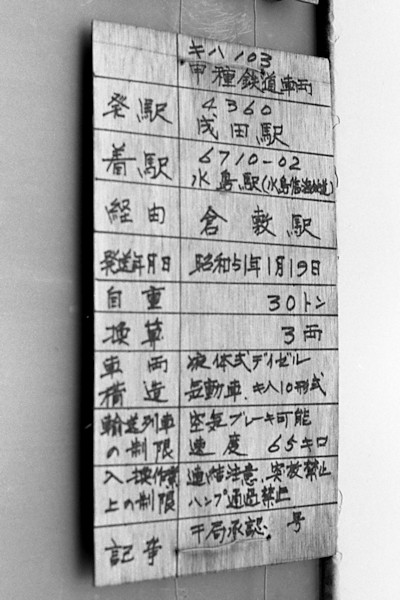 キハ103
甲種鉄道車両
発駅 4360
成田駅
着駅 6710-02
水島駅(水島臨海鉄道)
経由 倉敷駅
発送年月日 昭和51年1月19日
自重 30トン
換算 3両
車両構造 液体式デイゼル
気動車.キハ10形式
輸送列車の制限 空気ブレーキ可能
速度 65キロ
入換作業上の制限 連結注意.突放禁止
ハンプ通過禁止
記事 千局承認. 号